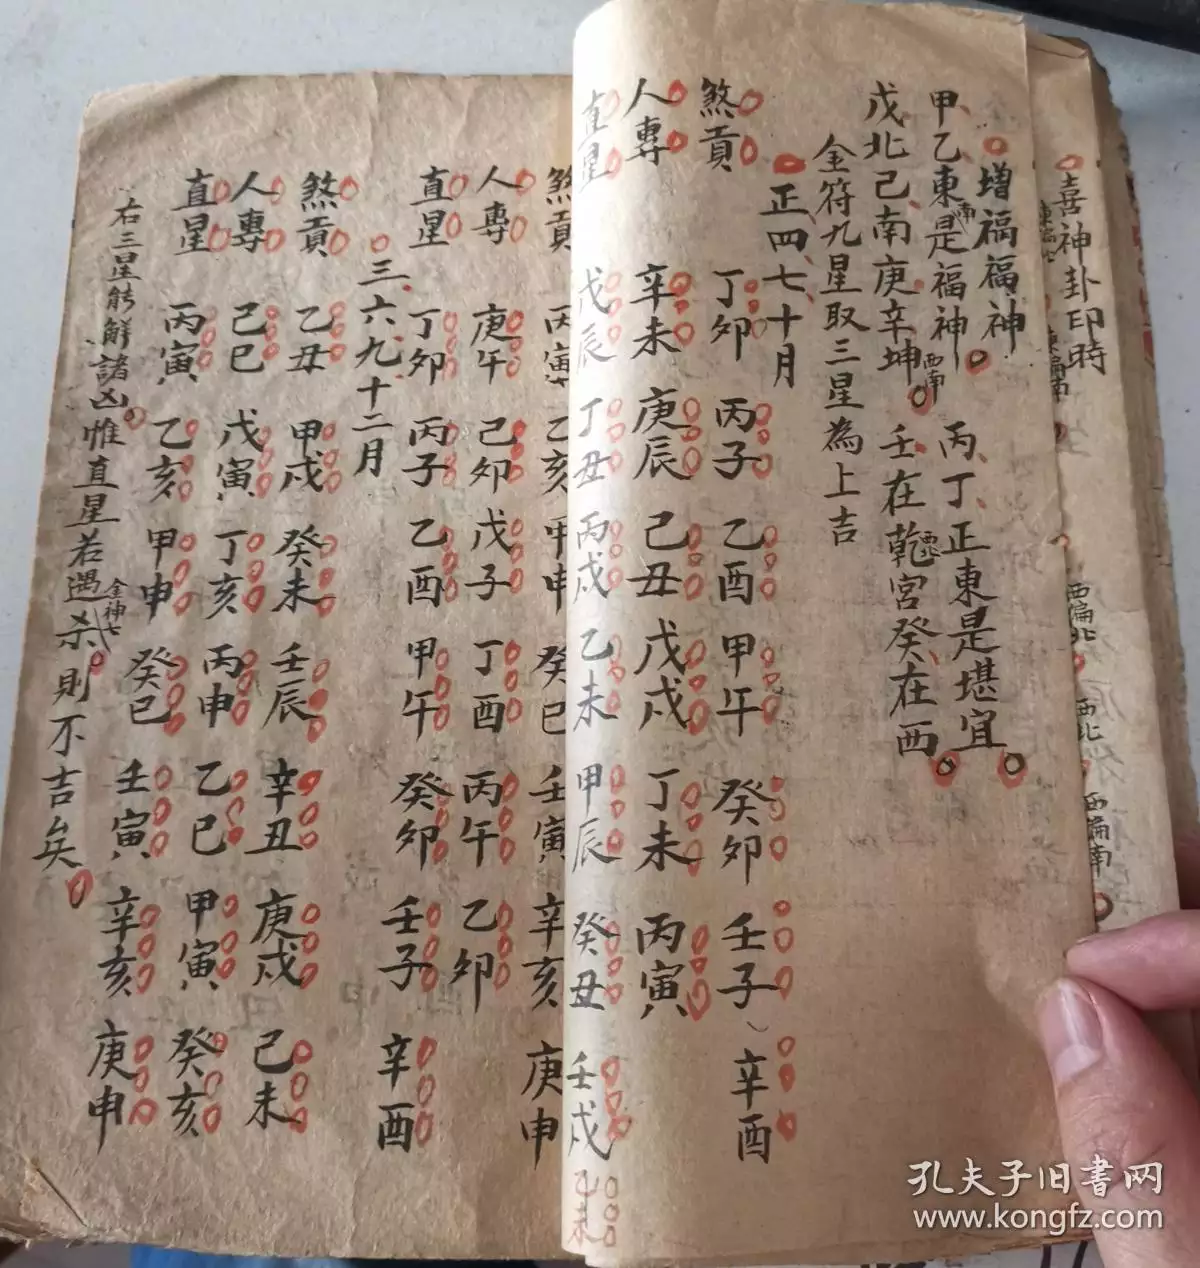 喜神卦印時
西偏北
西北
西偏南
增福福神
甲乙東南是福神 丙丁正東是堪宜
戊北己南庚辛坤西南 壬在乾宮癸在西
金符九星取三星為上吉
正四七十月
煞貢 丁卯 丙子 乙酉 甲午 癸卯 壬子 辛酉
人專 辛未 庚辰 己丑 戊戌 丁未 丙寅
直星 戊辰 丁丑 丙戌 乙未 甲辰 癸丑 壬戌
乙未
煞貢 丙寅 乙亥 甲申 癸巳 壬寅 辛亥 庚申
人專 庚午 己卯 戊子 丁酉 丙午 乙卯
直星 丁卯 丙子 乙酉 甲午 癸卯 壬子 辛酉
三六九十二月
煞貢 乙丑 甲戌 癸未 壬辰 辛丑 庚戌 己未
人專 己巳 戊寅 丁亥 丙申 乙巳 甲寅 癸亥
直星 丙寅 乙亥 甲申 癸巳 壬寅 辛亥 庚申
右三星能解諸凶惟直星若遇金神七杀則不吉矣
孔夫子旧书网
www.kongfz.com